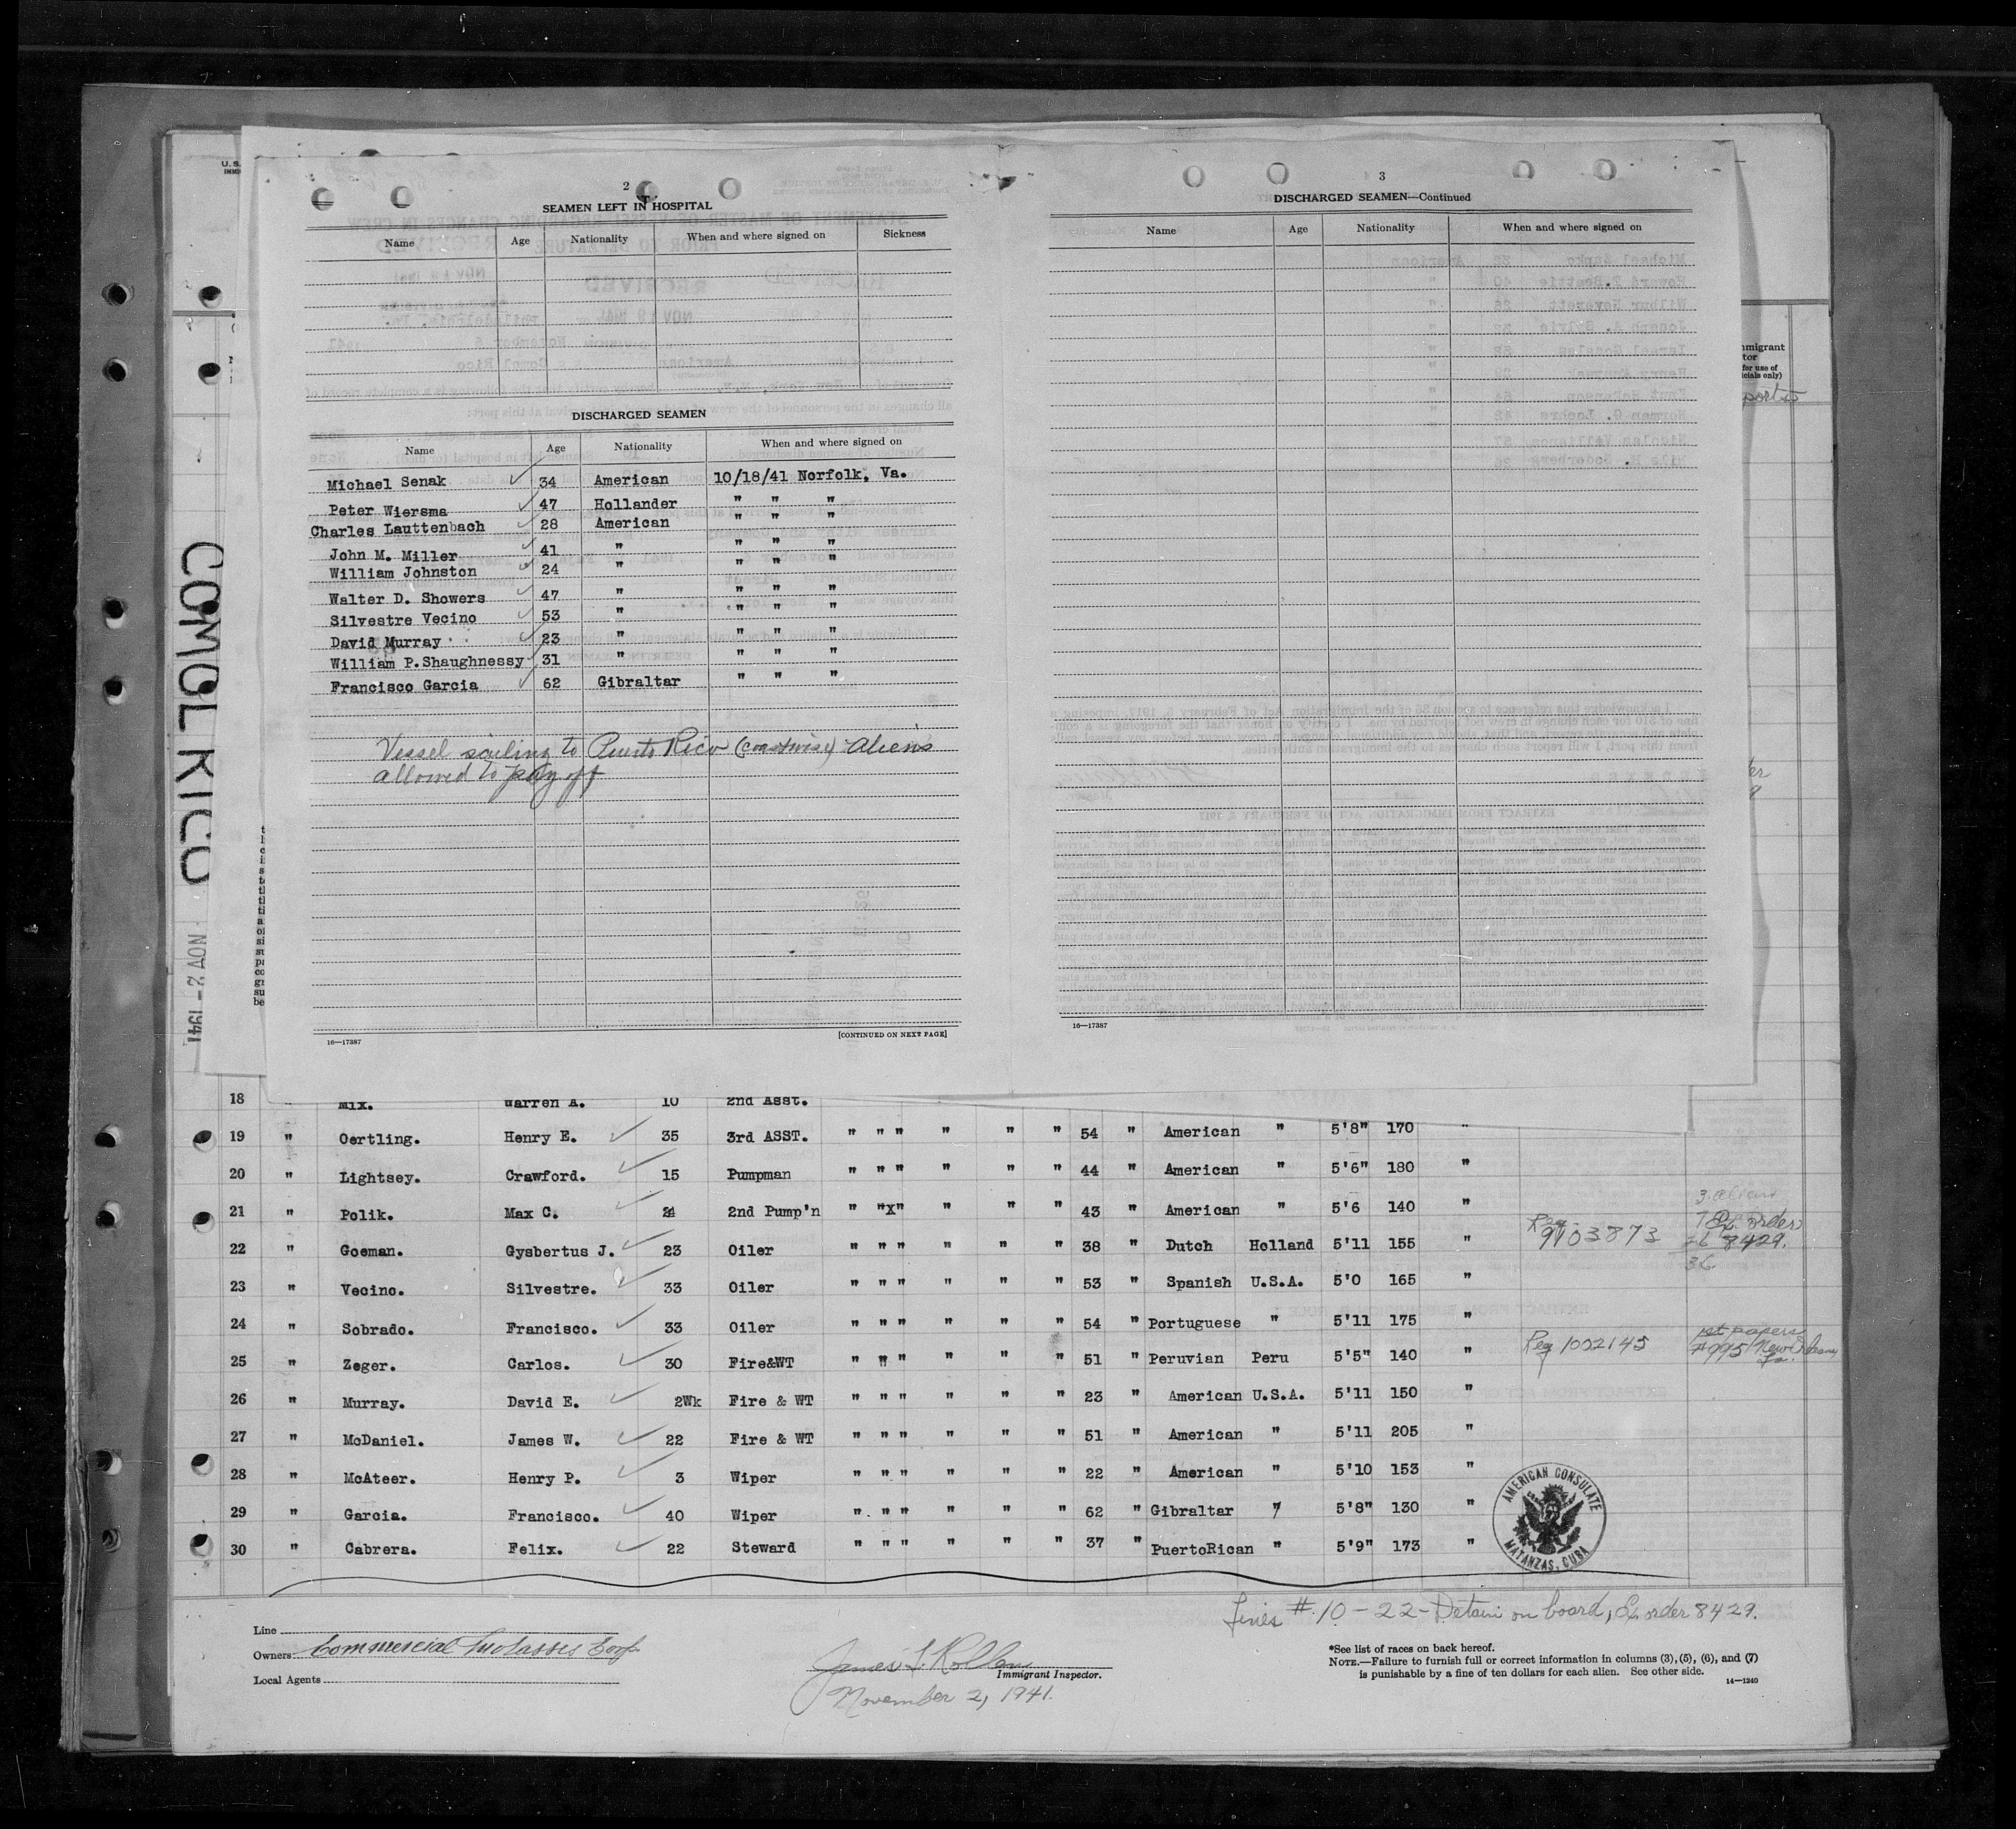 U.S.
2
SEAMEN LEFT IN HOSPITAL
Name Age Nationality When and where signed on Sickness
DISCHARGED SEAMEN
Name Age Nationality When and where signed on
Michael Senak 34 American 10/18/41 Norfolk, Va.
Peter Wiersma 47 Hollander " " "
Charles Lauttenbach 28 American " " "
John M. Miller 41 " " " "
William Johnston 24 " " " "
Walter D. Showers 47 " " " "
Silvestre Vecino 53 " " " "
David Murray 23 " " " "
William P.Shaughnessy 31 " " " "
Francisco Garcia 62 Gibraltar " " "
Vessel sailing to Puerto Rico (coastwise) Aliens
allowed to pay off
16—17387 [CONTINUED ON NEXT PAGE]
3
DISCHARGED SEAMEN—Continued
Name Age Nationality When and where signed on
16—17387
COMOL RICO
NOV -2 1941
18 " Mix. Warren A. 10 2nd Asst.
19 " Oertling. Henry E. 35 3rd ASST. " " " " " " 54 " American " 5'8" 170 "
20 " Lightsey. Crawford. 15 Pumpman " " " " " " 44 " American " 5'6" 180 "
21 " Polik. Max C. 24 2nd Pump'n " "X" " " " 43 " American " 5'6 140 "
22 " Goeman. Gysbertus J. 23 Oiler " " " " " " 38 " Dutch Holland 5'11 155 " Reg 9103873 Ex order 8429.
23 " Vecino. Silvestre. 33 Oiler " " " " " " 53 " Spanish U.S.A. 5'0 165 "
24 " Sobrado. Francisco. 33 Oiler " " " " " " 54 " Portuguese " 5'11 175 "
25 " Zeger. Carlos. 30 Fire&WT " " " " " " 51 " Peruvian Peru 5'5" 140 " Reg 1002145 1st papers #995 New Orleans La.
26 " Murray. David E. 2Wk Fire & WT " " " " " " 23 " American U.S.A. 5'11 150 "
27 " McDaniel. James W. 22 Fire & WT " " " " " " 51 " American " 5'11 205 "
28 " McAteer. Henry P. 3 Wiper " " " " " " 22 " American " 5'10 153 "
29 " Garcia. Francisco. 40 Wiper " " " " " " 62 " Gibraltar " 5'8" 130 "
30 " Cabrera. Felix. 22 Steward " " " " " " 37 " PuertoRican " 5'9" 173 "
3 aliens
36
AMERICAN CONSULATE
MATANZAS, CUBA
Lines # 10 - 22 - Detain on board, Ex order 8429.
Line
Owners Commercial Molasses Corp.
Local Agents
James L. Rollan
Immigrant Inspector.
November 2, 1941.
*See list of races on back hereof.
NOTE.—Failure to furnish full or correct information in columns (3), (5), (6), and (7)
is punishable by a fine of ten dollars for each alien. See other side.
14—1240